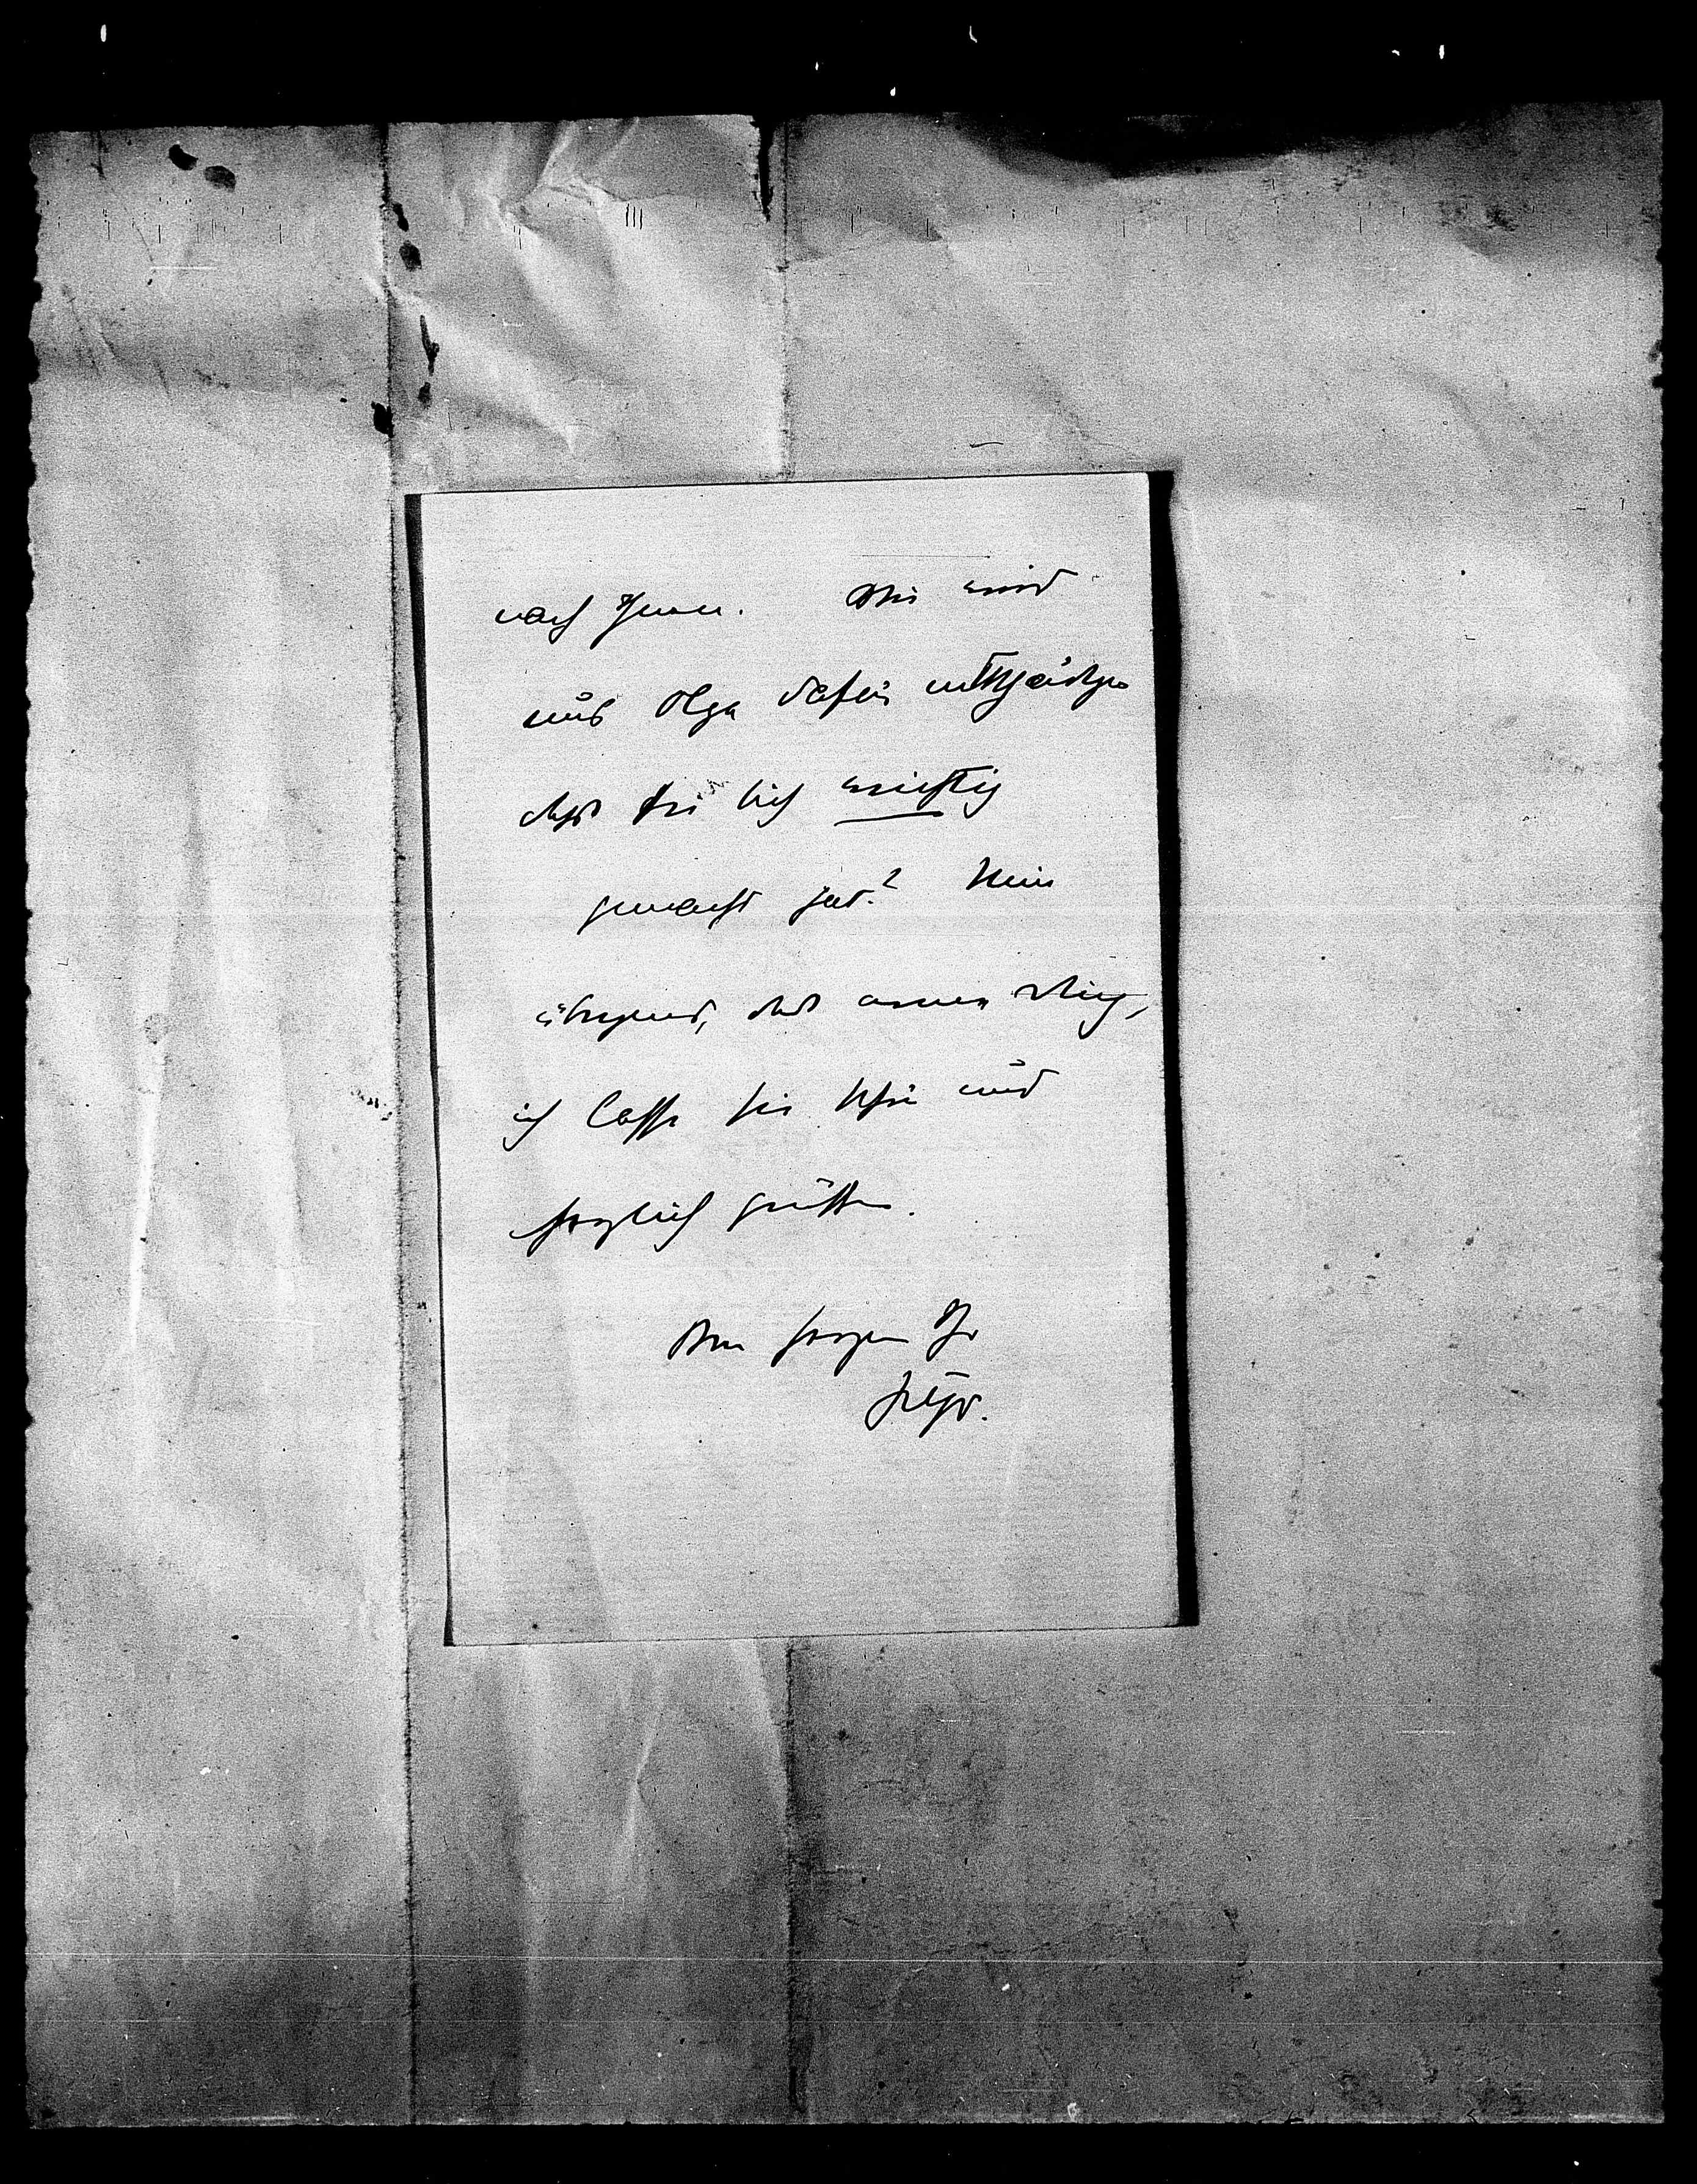 nach Ihnen. Wie wird
uns Olga dafür entschädigen
daß sie sich wichtig
gemacht hat? Nein
übrigens, das arme Ding,
ich lasse sie sehr und
herzlich grüßen.
Von Herzen Ihr